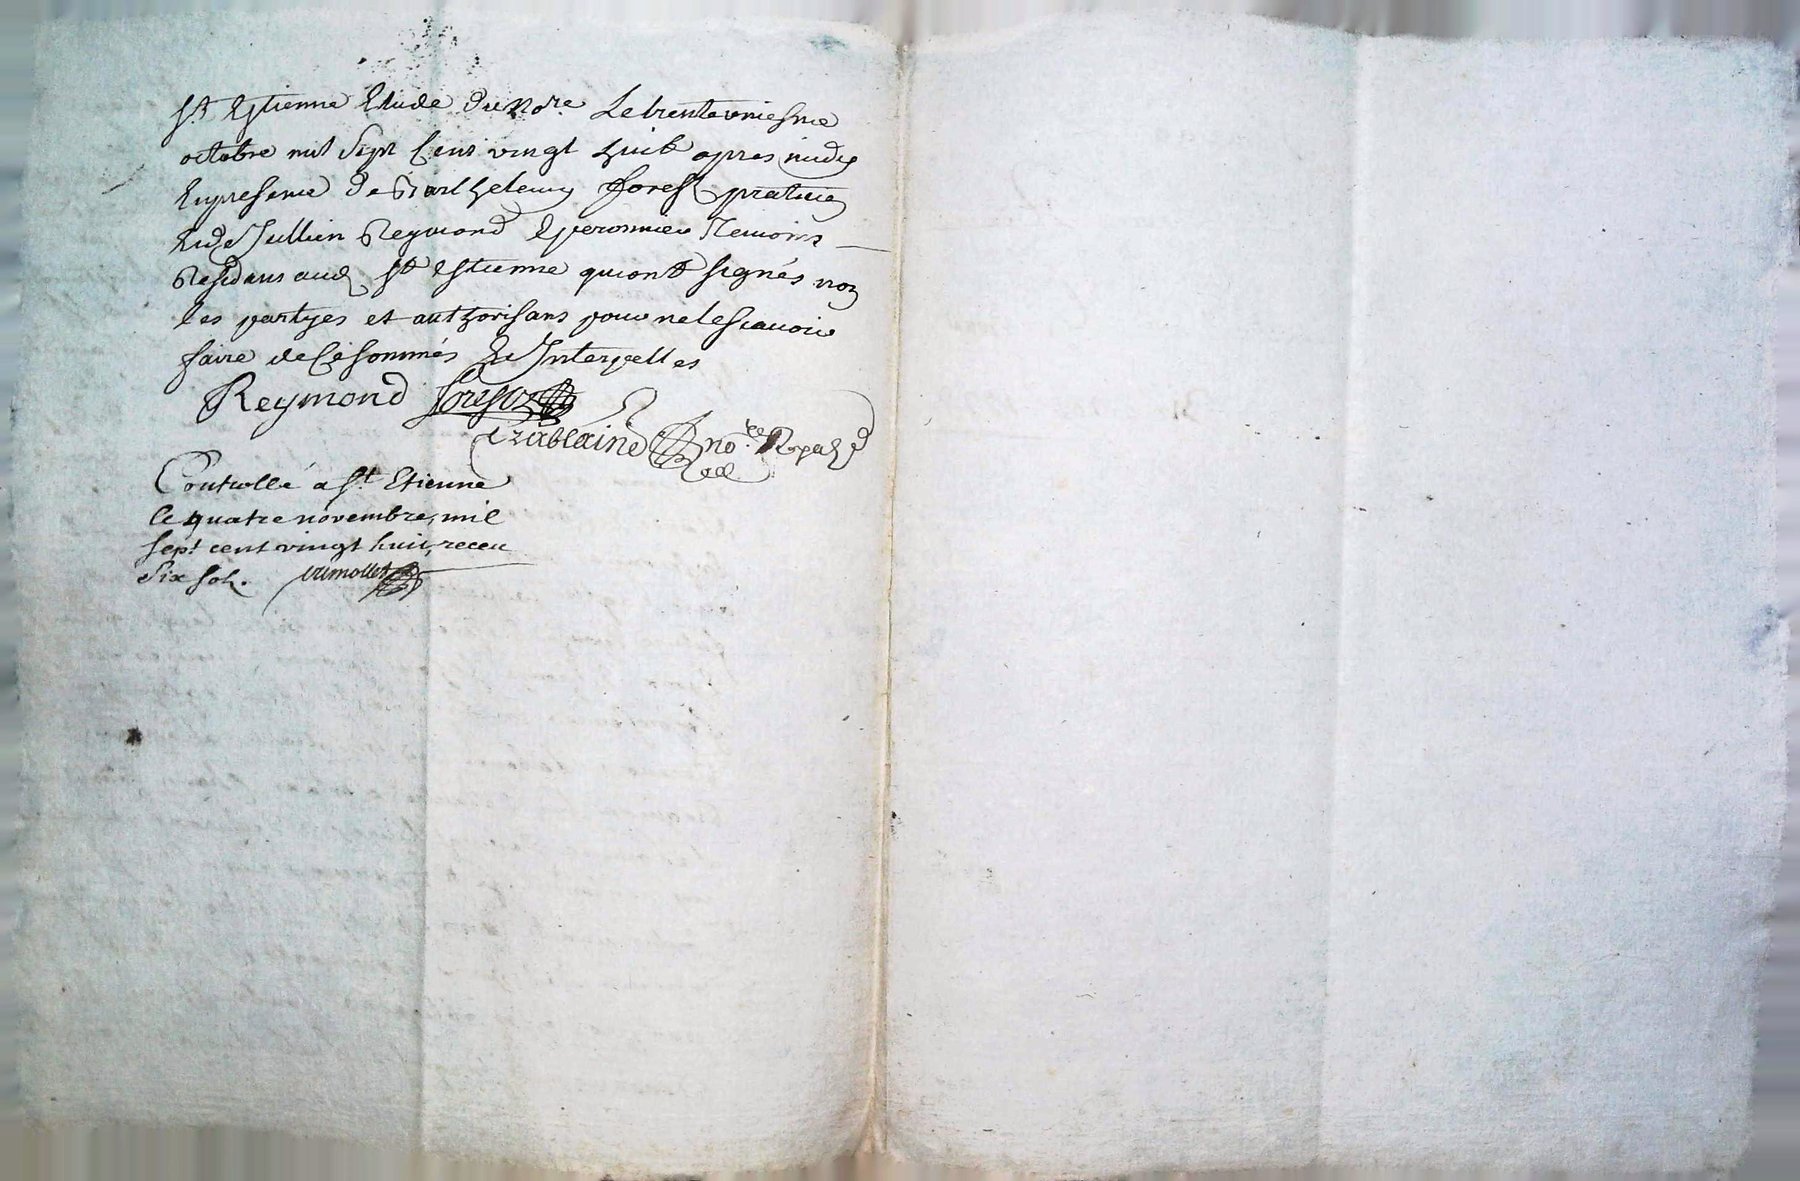 St Estienne Etude du No.re Le trente uniesme
octobre mil Sept Cent vingt huit apres midy
En presence de Barthelemy Forest praticien
Et de Jullien Reymond Eperonnier Temoins
Residans aud St Estienne qui ont signés non
les partyes et authorisans pour ne le scavoir
faire de Ce sommés Et Interpellés
Reymond Forest
Chablaine no.re Royal
Controllé a St Etienne
le quatre novembre, mil
sept cent vingt huit, receu
Six sols.